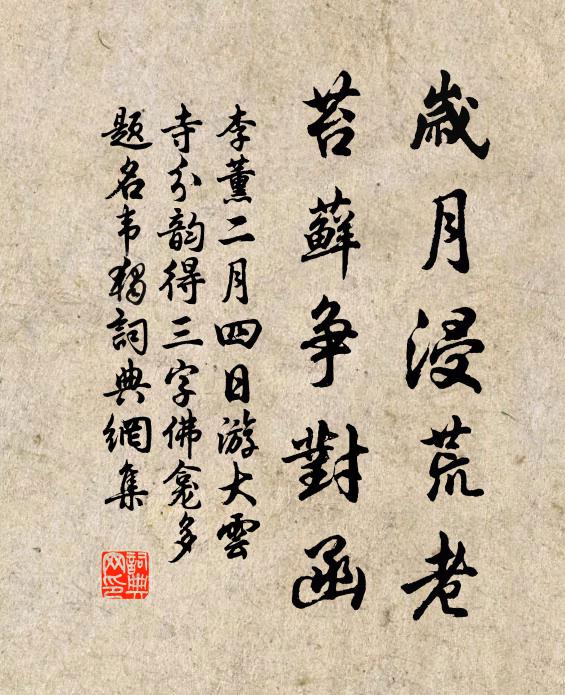 歲月浸荒老
苔蘚爭對函
李薰二月四日游大雲
寺分韵得三字佛龕多
題名韦獨詞典網集
詞典網印